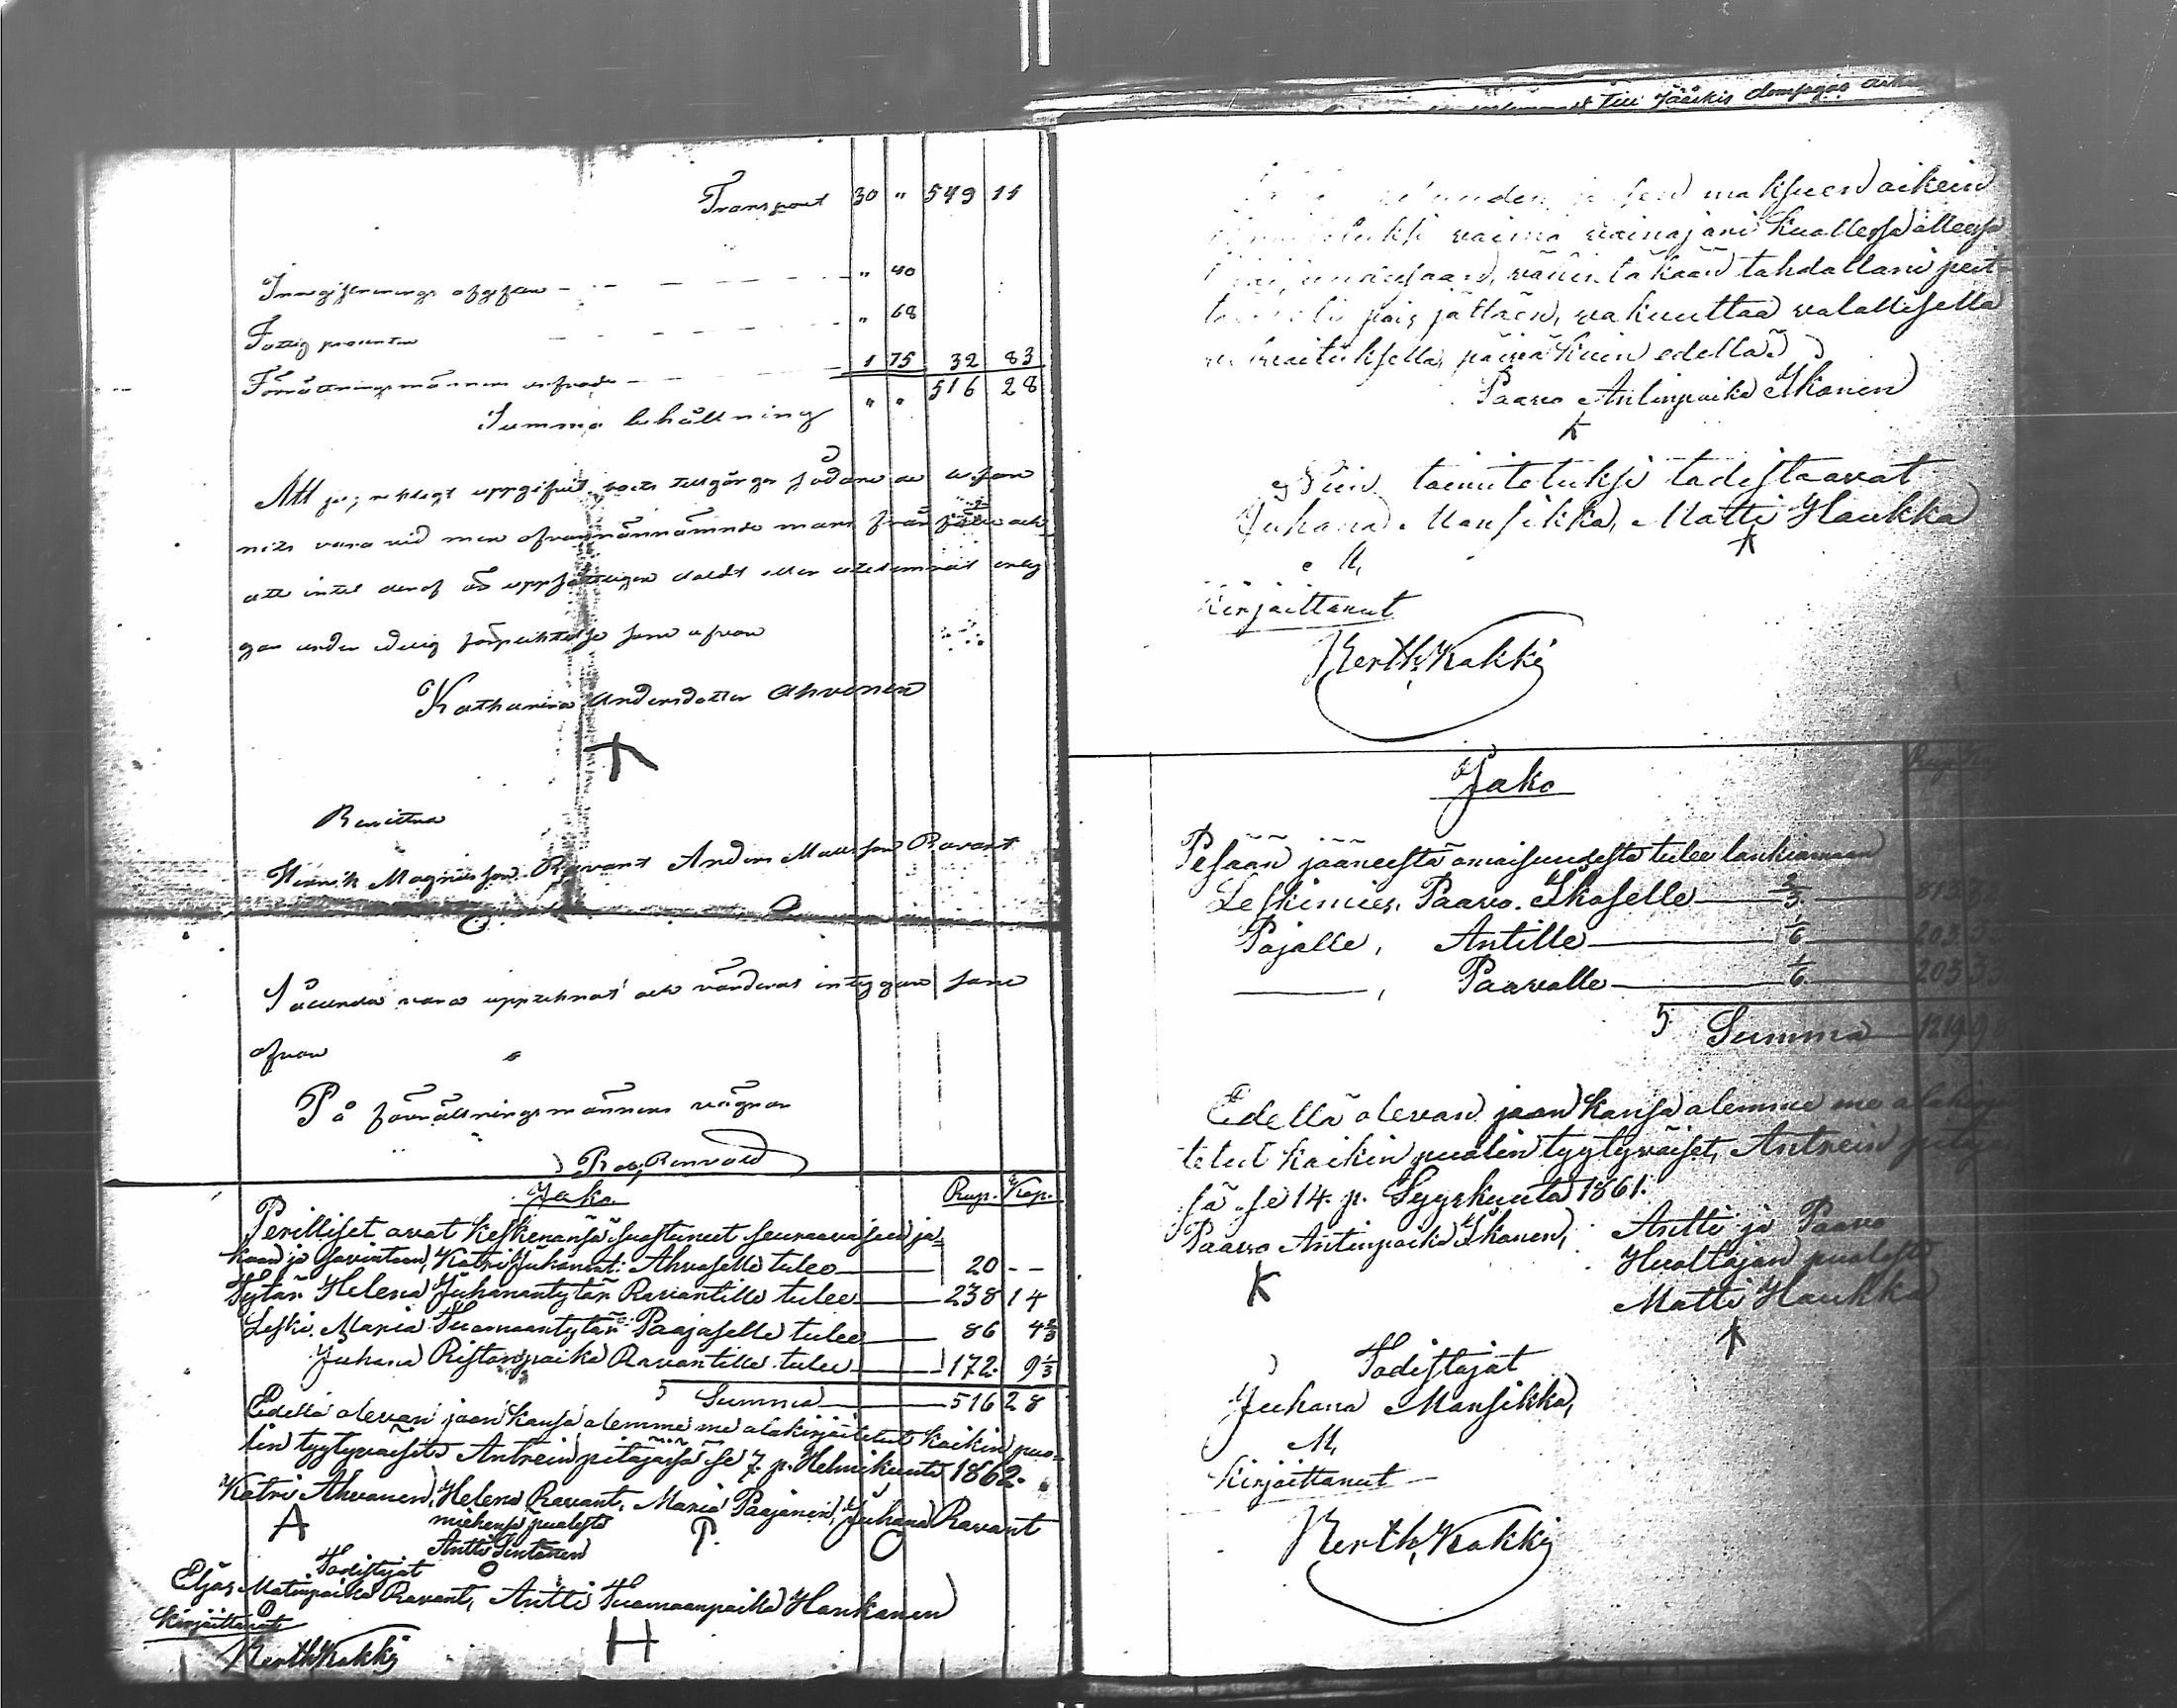 Transport 30 " 549 11
Inregistrerings afgiften " 40
Fattig procenten " 68
Förrättningsmännens arfvode 1 75 32 83
Summa behållning " " 516 28
Att jag riktigt uppgifvit boets tillgångar sådane de
vara vid min ofvannämnde mans
att intet deraf är uppsåtligen doldt eller utelemnat
under edelig förpligtelse som ofvan
Katharina Andersdotter Ahvonen
Bevittna
Henrik Magnusson Ravant Anders Mattsson Ravant
Sålunda vara upptecknat och värderat intygar som
ofvan
På förrättningsmännens vägnar
Rob. Renvald
Jako Rup. Kop.
Perilliset ovat keskenänsä suostunut seuraavaiseen ja-
kaan ja sovintoon, Katri Juhanant: Ahvoselle tulee 20 - -
Tytär Helena Juhanantytär Ravantille tulee 238 14
Leski Maria Tuomaantytär Paajaselle tulee 86 4 2/3
Juhana Ristonpoika Ravantille tulee 172 9 1/3
Summa 516 28
Edellä olevan jaon kansa olemme me alakirjoitetut kaikin puo-
lin tyytyväiset, Antrein pitäjässä se 7. p. Helmikuuta 1862.
Katri Ahvonen, Helena Ravant, Maria Paajanen, Juhana Ravant
A miehensä puolesta P.
Antti Sintonen
Todistajat
Eljas Matinpoika Ravant, Antti Tuomaanpoika Haukanen
Kirjoittanut H
Berth. Kokki
till Jääskis domsagas
maksuen oikein
vaimo vainajani kuollessa olleen
vähintäkään tahdollani peit-
pois jättäen, vakuuttaa valallisella
velvoituksella, päivä kuin edellä.
Paavo Antinpoika Ikonen
K
Niin toimitetuksi todistaavat
Juhana Mansikka, Matti Haukka
M,
Kirjoittanut
Berth. Kokki
Jako Rup.
Pesään jääneestä omaisuudesta tulee lankiamaan
Leskimies, Paavo Ikoselle 2/3 813
Pojalle, Antille 1/6 203
—, Paavalle 1/6 203 33
Summa 1219 98
Edellä olevan jaon kansa olemme me
tetut kaikin puolin tyytyväiset, Antrein
sä se 14. p. Syyskuuta 1861.
Paavo Antinpoika Ikonen, Antti ja Paavo
K Huoltajan puolesta
Matti Haukka
Todistajat
Juhana Mansikka,
M,
Kirjoittanut
Berth. Kokki